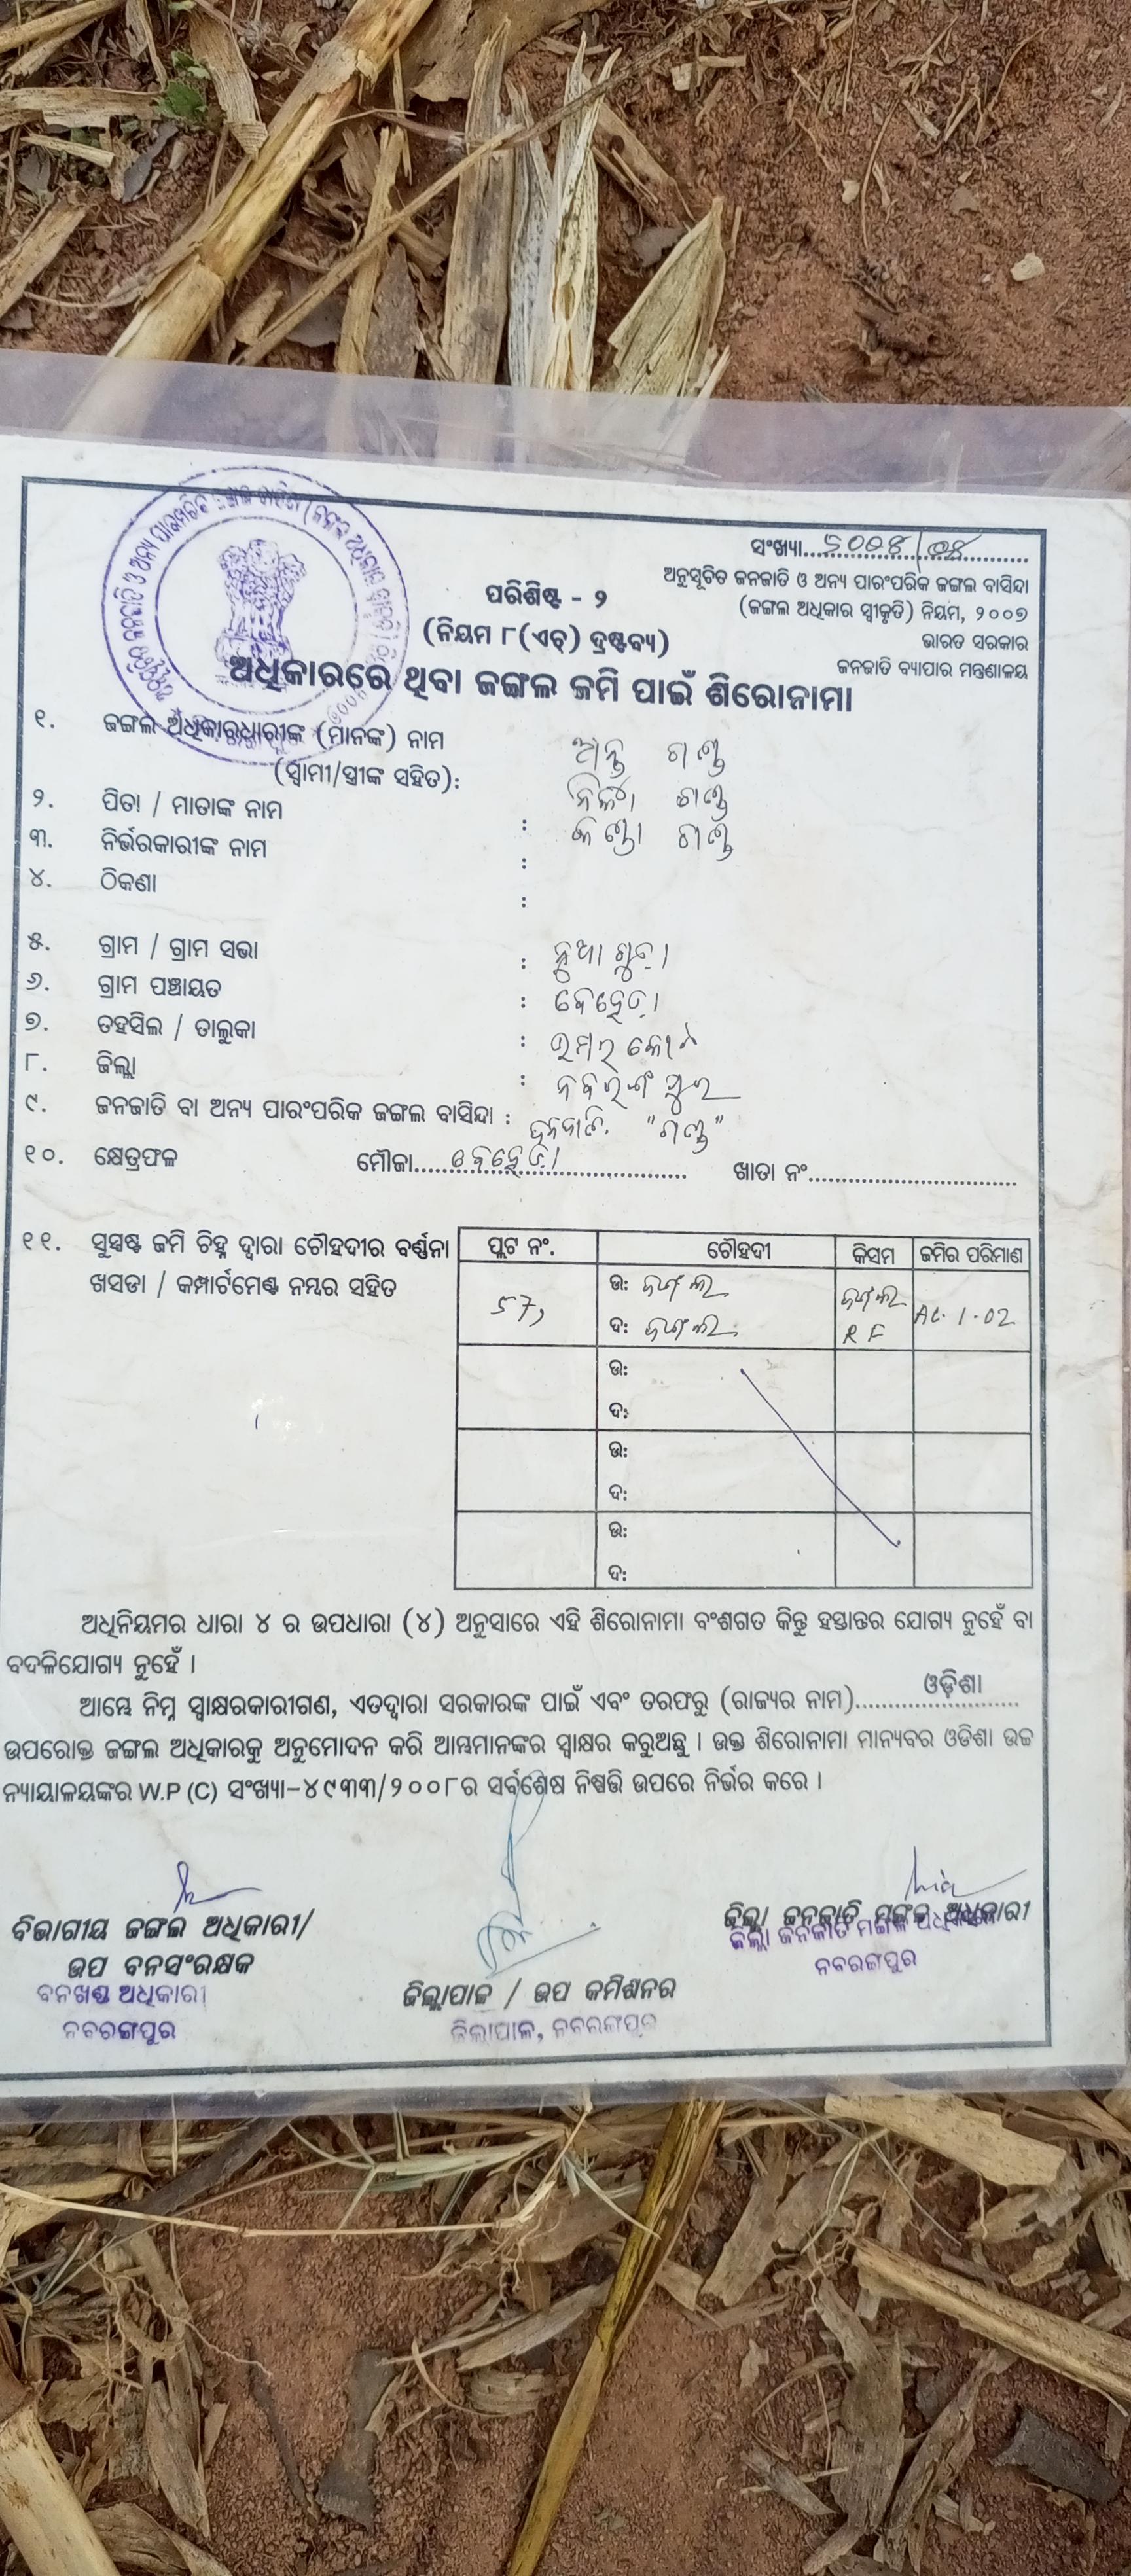 ସଂଖ୍ୟା
ଅନୁସୂଚିତ ଜନଜାତି ଓ ଅନ୍ୟ ପାରଂପରିକ ଜଙ୍ଗଲ ବାସିନ୍ଦା
(ଜଙ୍ଗଲ ଅଧିକାର ସ୍ୱୀକୃତି) ନିୟମ, ୨୦୦୭
ଭାରତ ସରକାର
ଜନଜାତି ବ୍ୟାପାର ମନ୍ତ୍ରଣାଳୟ
ପରିଶିଷ୍ଟ - ୨
(ନିୟମ ୮(ଏଚ୍) ଦ୍ରଷ୍ଟବ୍ୟ)
ଅଧିକାରରେ ଥିବା ଜଙ୍ଗଲ ଜମି ପାଇଁ ଶିରୋନାମା
୧. ଜଙ୍ଗଲ ଅଧିକାରଧାରୀଙ୍କ (ମାନଙ୍କ) ନାମ
(ସ୍ୱାମୀ/ସ୍ତ୍ରୀଙ୍କ ସହିତ): ଅନ୍ତୁ ଗଣ୍ଡ
୨. ପିତା / ମାତାଙ୍କ ନାମ : ଗଣ୍ଡ
୩. ନିର୍ଭରକାରୀଙ୍କ ନାମ : ଗଣ୍ଡ
୪. ଠିକଣା :
୫. ଗ୍ରାମ / ଗ୍ରାମ ସଭା : ନୁଆଗୁଡ଼ା
୬. ଗ୍ରାମ ପଞ୍ଚାୟତ : ବେହେଡ଼ା
୭. ତହସିଲ / ତାଲୁକା : ଉମରକୋଟ
୮. ଜିଲ୍ଲା : ନବରଙ୍ଗପୁର
୯. ଜନଜାତି ବା ଅନ୍ୟ ପାରଂପରିକ ଜଙ୍ଗଲ ବାସିନ୍ଦା : ଜନଜାତି. "ଗଣ୍ଡ"
୧୦. କ୍ଷେତ୍ରଫଳ ମୌଜା ବେହେଡ଼ା ଖାତା ନଂ
୧୧. ସୁସ୍ପଷ୍ଟ ଜମି ଚିହ୍ନ ଦ୍ୱାରା ଚୌହଦୀର ବର୍ଣ୍ଣନା
ଖସଡା / କମ୍ପାର୍ଟମେଣ୍ଟ ନମ୍ବର ସହିତ
ପ୍ଲଟ ନଂ. ଚୌହଦୀ କିସମ ଜମିର ପରିମାଣ
57, ଉ: ଜଙ୍ଗଲ ଜଙ୍ଗଲ AC. 1.02
ଦ: ଜଙ୍ଗଲ RF
ଉ:
ଦ:
ଉ:
ଦ:
ଉ:
ଦ:
ଅଧିନିୟମର ଧାରା ୪ ର ଉପଧାରା (୪) ଅନୁସାରେ ଏହି ଶିରୋନାମା ବଂଶଗତ କିନ୍ତୁ ହସ୍ତାନ୍ତର ଯୋଗ୍ୟ ନୁହେଁ ବା
ବଦଳିଯୋଗ୍ୟ ନୁହେଁ ।
ଆମ୍ଭେ ନିମ୍ନ ସ୍ୱାକ୍ଷରକାରୀଗଣ, ଏତଦ୍ୱାରା ସରକାରଙ୍କ ପାଇଁ ଏବଂ ତରଫରୁ (ରାଜ୍ୟର ନାମ) ଓଡ଼ିଶା
ଉପରୋକ୍ତ ଜଙ୍ଗଲ ଅଧିକାରକୁ ଅନୁମୋଦନ କରି ଆମ୍ଭମାନଙ୍କର ସ୍ୱାକ୍ଷର କରୁଅଛୁ । ଉକ୍ତ ଶିରୋନାମା ମାନ୍ୟବର ଓଡିଶା ଉଚ୍ଚ
ନ୍ୟାୟାଳୟଙ୍କର W.P (C) ସଂଖ୍ୟା-୪୯୩୩/୨୦୦୮ର ସର୍ବଶେଷ ନିଷ୍ପତ୍ତି ଉପରେ ନିର୍ଭର କରେ ।
ବିଭାଗୀୟ ଜଙ୍ଗଲ ଅଧିକାରୀ/
ଉପ ବନସଂରକ୍ଷକ
ବନଖଣ୍ଡ ଅଧିକାରୀ
ନବରଙ୍ଗପୁର
ଜିଲ୍ଲାପାଳ / ଉପ କମିଶନର
ଜିଲ୍ଲାପାଳ, ନବରଙ୍ଗପୁର
ଜିଲ୍ଲା ଜନଜାତି ମଙ୍ଗଳ ଅଧିକାରୀ
ଜିଲ୍ଲା ଜନଜାତି ମଙ୍ଗଳ ଅଧିକାରୀ
ନବରଙ୍ଗପୁର